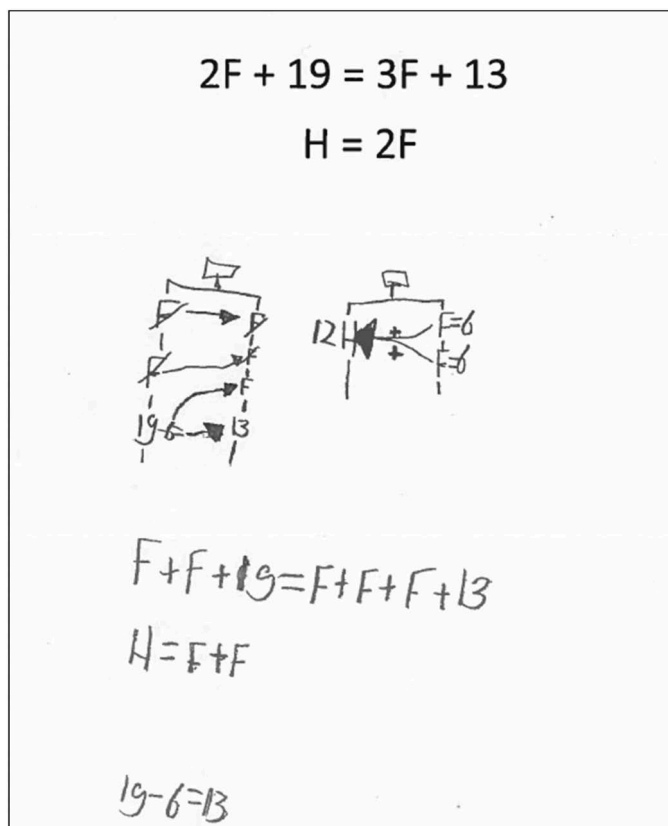 2F + 19 = 3F + 13
H = 2F
F F
F F
F
19-6 13
12 H + F=6
+ F=6
F+F+19=F+F+F+13
H=F+F
19-6=13